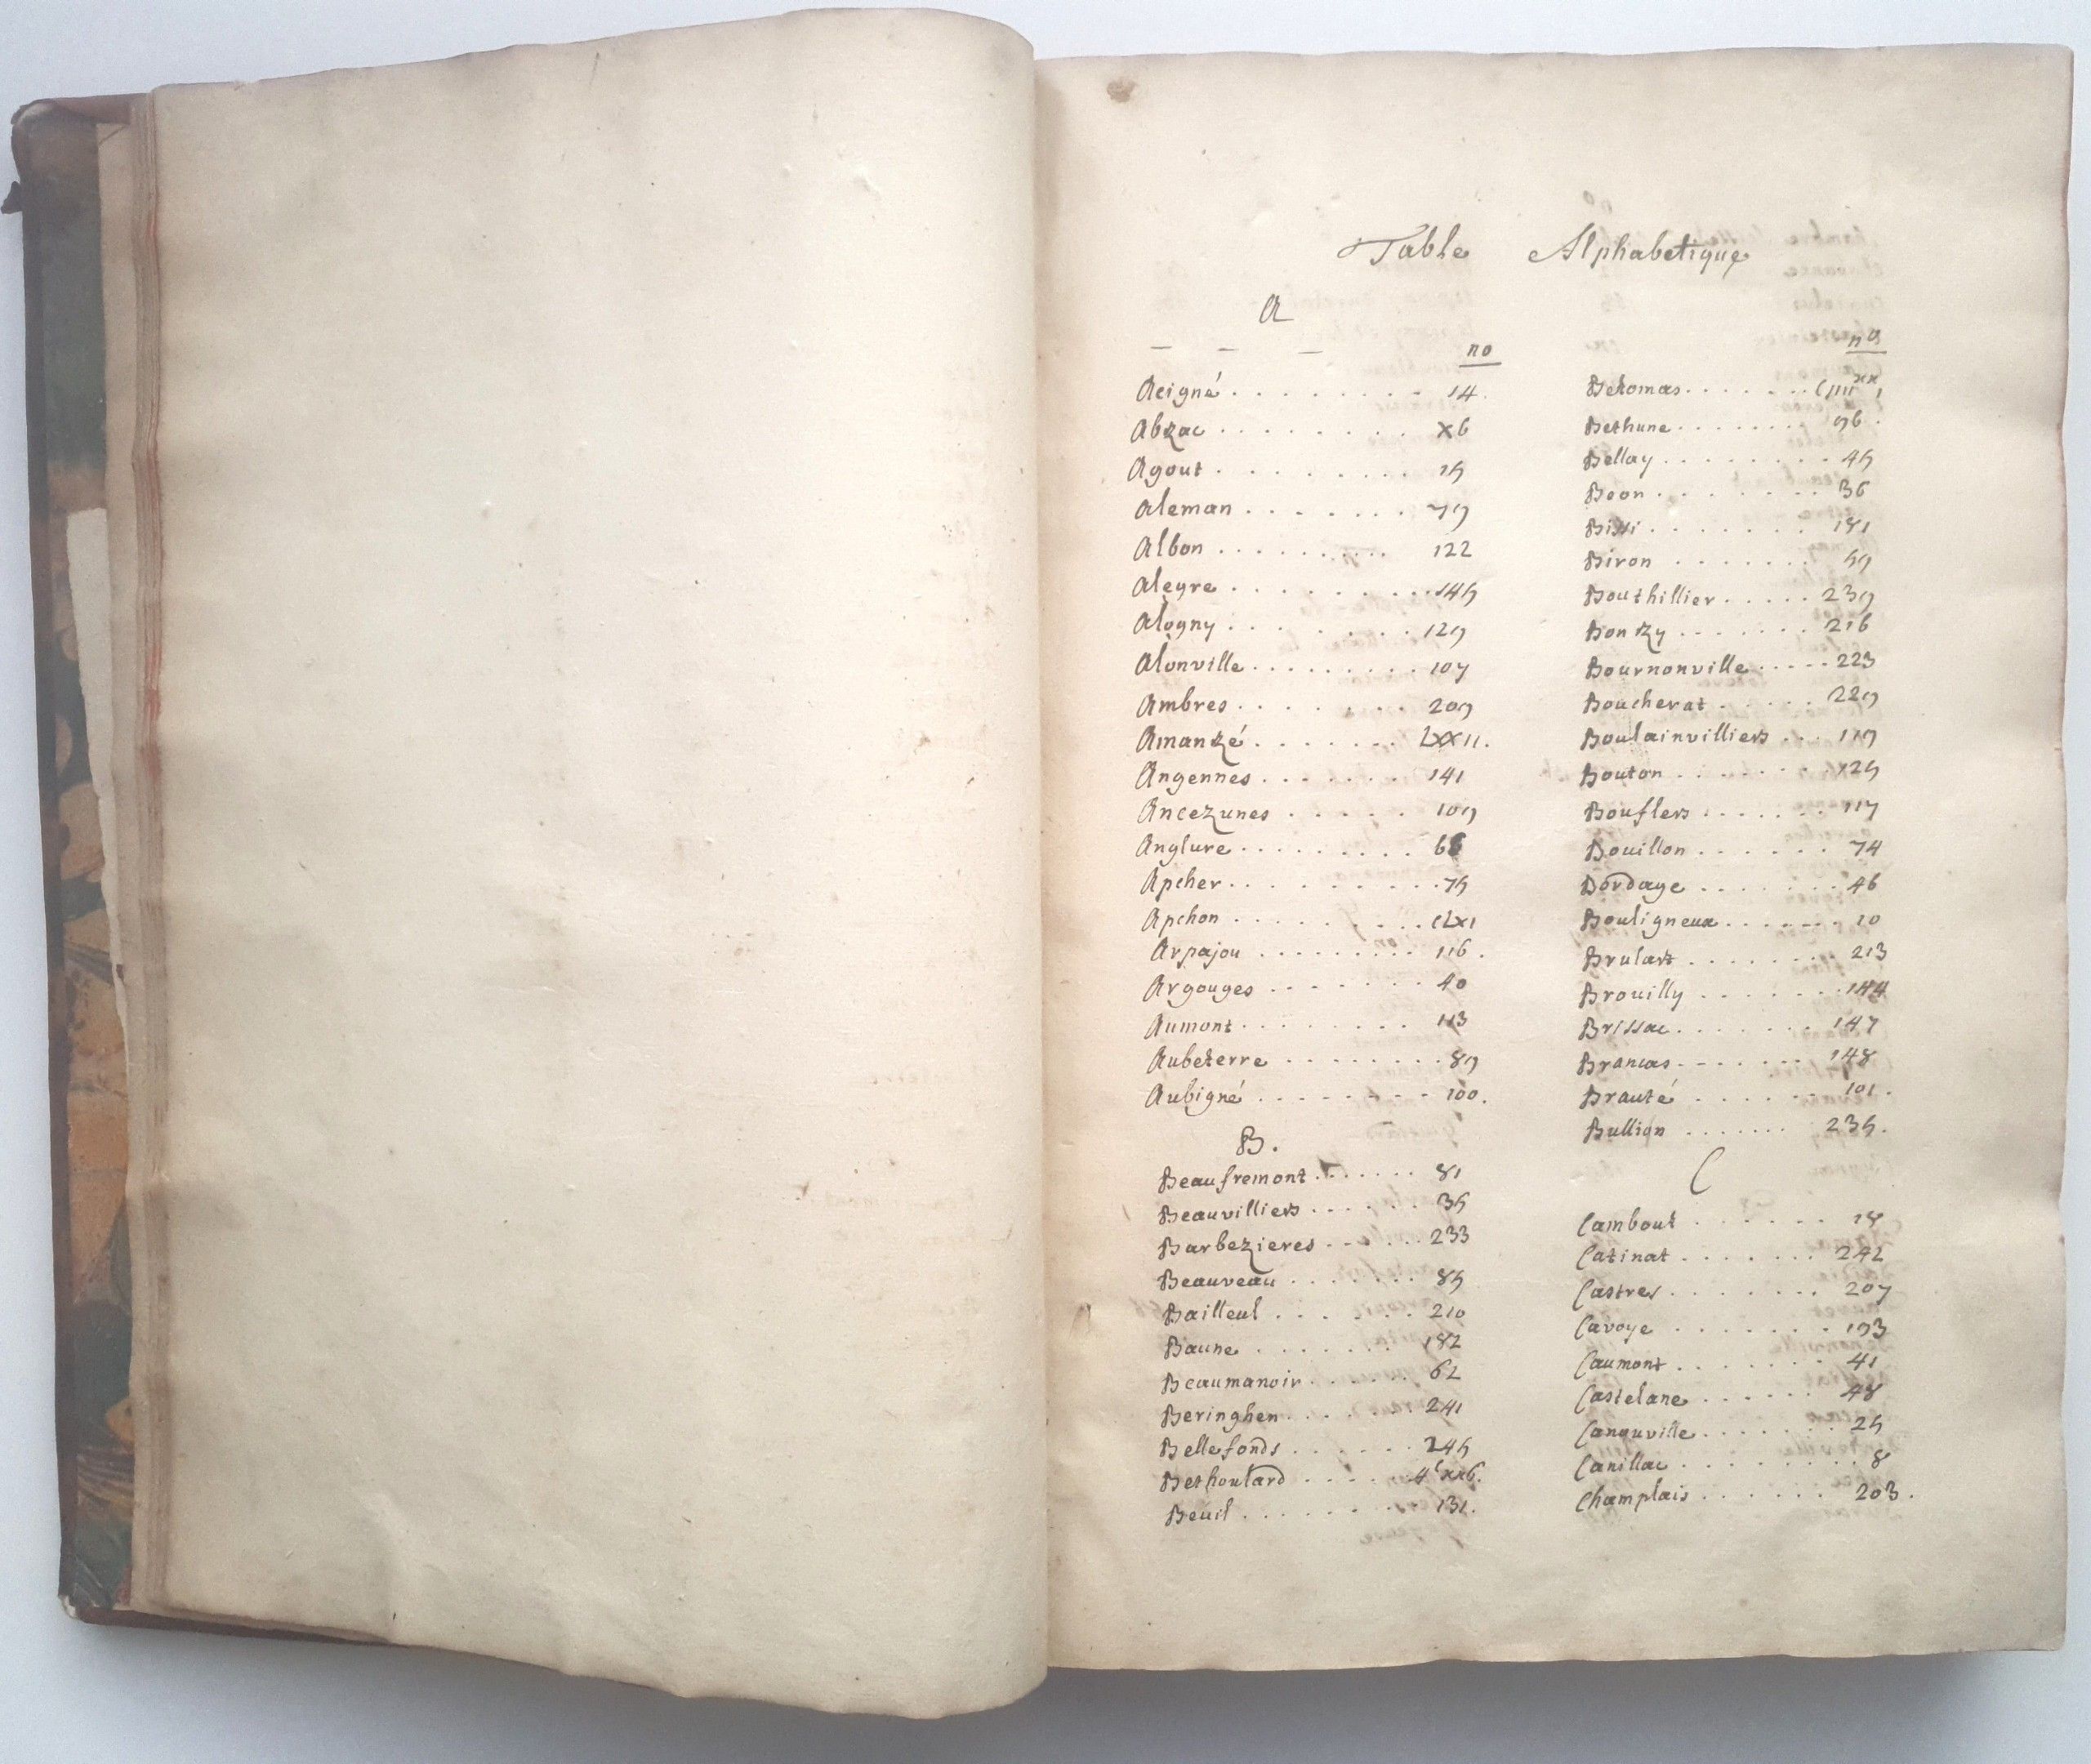 Table Alphabetique
A
no
Acigné . . . . . . . . 14.
Abzac . . . . . . . . x6
Agout . . . . . . . . 15
Aleman . . . . . . . 79
Albon . . . . . . . . . 122
Alegre . . . . . . . . . 145
Alogny . . . . . . . 129
Alonville . . . . . . . . 107
Ambres . . . . . . . 209
Amanzé . . . . . . . Lxx11.
Angennes . . . . . . . 141
Ancezunes . . . . . 109
Anglure . . . . . . . . . 66
Apcher . . . . . . . . . 75
Apchon . . . . . . . . . CLx1
Arpajou . . . . . . . . . 116.
Argouges . . . . . . . 40
Aumont . . . . . . . . 113
Aubeterre . . . . . . . . 89
Aubigné . . . . . . . . 100.
B.
Beaufremont . . . . . . 81
Beauvilliers . . . . . . 35
Barbezieres . . . . . 233
Beauveau . . . . . . . 85
Bailleul . . . . . . 210
Baune . . . . . . . 182
Beaumanoir . . . . . . 62
Beringhen . . . . . . 241
Bellefonds . . . . . . 245
Bethoulard . . . . .
Beuil . . . . . . . . 131.
no
Betomas . . . . . . .
Bethune . . . . . . . . 96.
Bellay . . . . . . . . 45
Beon . . . . . . . 36
Bissi . . . . . . . 181
Biron . . . . . . . 59
Bouthillier . . . . . 239
Bonzy . . . . . . . 216
Bournonville . . . . . 223
Boucherat . . . . . 229
Boulainvilliers . . . 119
Bouton . . . . . . . x25
Bouflers . . . . . . . 117
Bouillon . . . . . . 74
Bordage . . . . . . . 46
Bouligneux . . . . . . 10
Brulart . . . . . . . 213
Brouilly . . . . . . . 144
Brissac . . . . . . . 147
Brancas . . . . . . . 148
Brauté . . . . . . . 101.
Bullion . . . . . . . 235.
C
Cambout . . . . . . 18
Catinat . . . . . . . 242
Castres . . . . . . . 207
Cavoye . . . . . . . 193
Caumont . . . . . . . 41
Castelane . . . . . . 48
Canouville . . . . . . . 25
Canillac . . . . . . . . 8
Champlais . . . . . . 203.